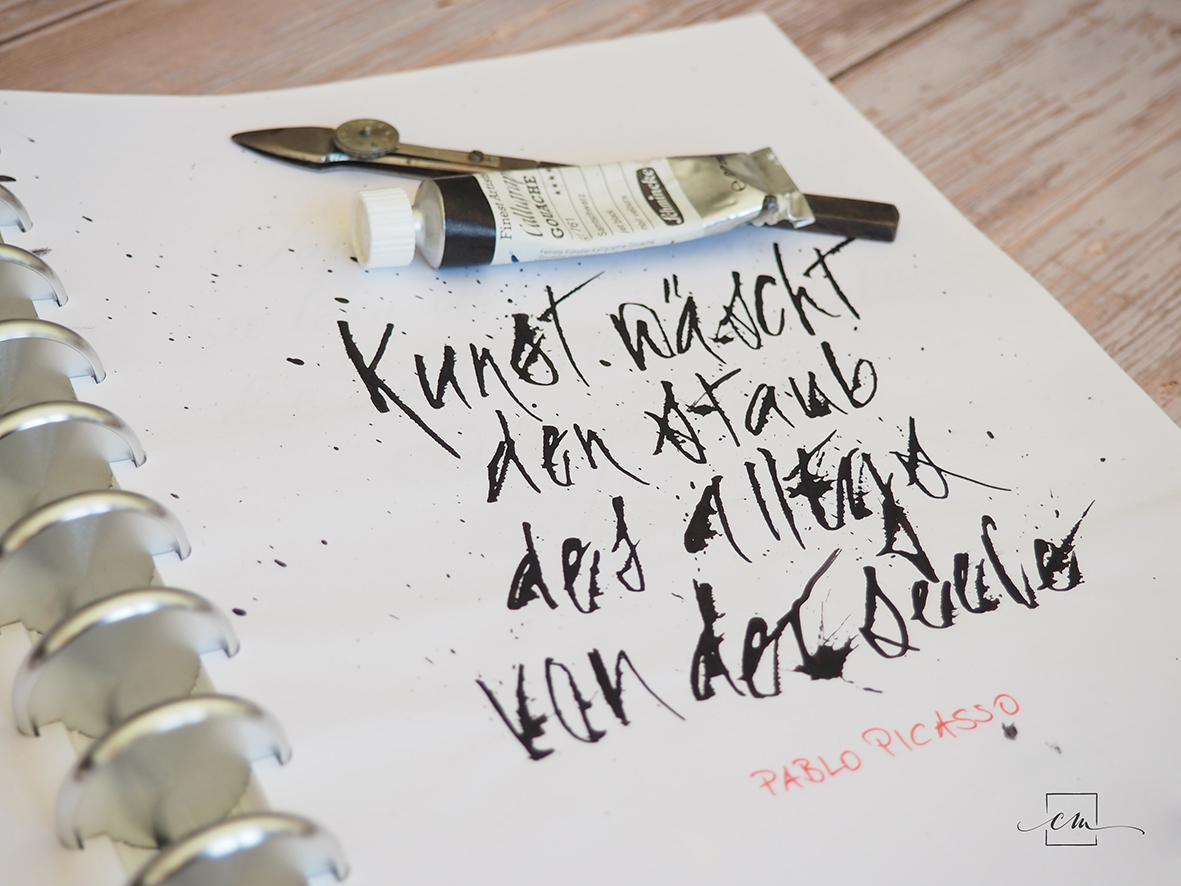 Finest Artists'
Calligraphy
GOUACHE
761
Schmincke
Kunst wäscht
den staub
des alltags
von der seele
PABLO PICASSO
cm